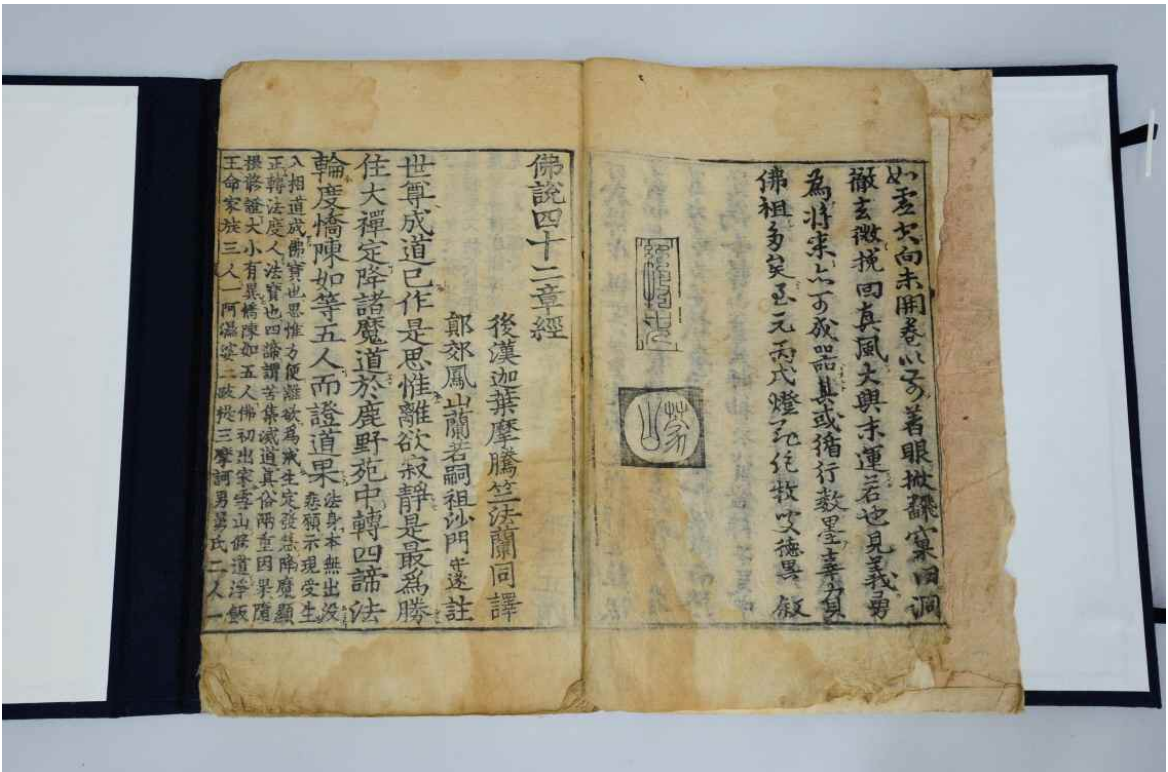 如虗空向未開卷以前著眼撤飜窠臼洞
徹玄微挽回真風大興末運若也見義勇
為将来亦可成器其或循行數墨辜負
佛祖多矣至元丙戌燈牧叟德異敘
蒙山
佛說四十二章經
後漢迦葉摩騰竺法蘭同譯
鄖郊鳳山蘭若嗣祖沙門守遂註
世尊成道已作是思惟離欲寂靜是最爲勝
住大禪定降諸魔道於鹿野苑中轉四諦法
輪度憍陳如等五人而證道果
法身本無出没
悲願示現受生
八相道成佛寶也思惟方便離欲爲戒生定發慧降魔顯
正轉法度人法寶也四諦謂苦集滅道真俗兩重因果隨
根修證大小有異憍陳如五人佛初出家雪山修道淨飯
王命家族三人一阿濕婆二跋提三摩訶男舅氏二人一